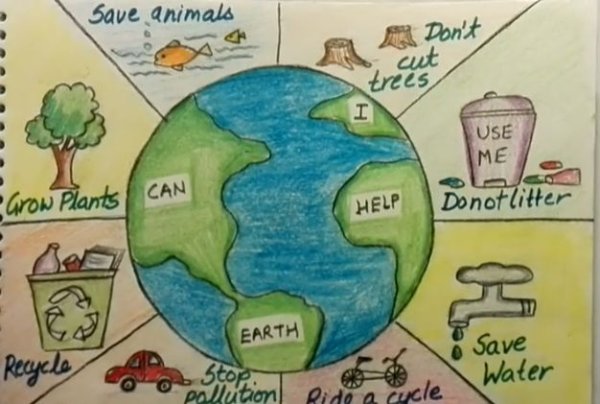 Save animals
Don't
cut
trees
I
USE
ME
CAN
HELP
Grow Plants
Donotlitter
EARTH
Save
Water
Recycle
Stop
pollution
Ride a cycle